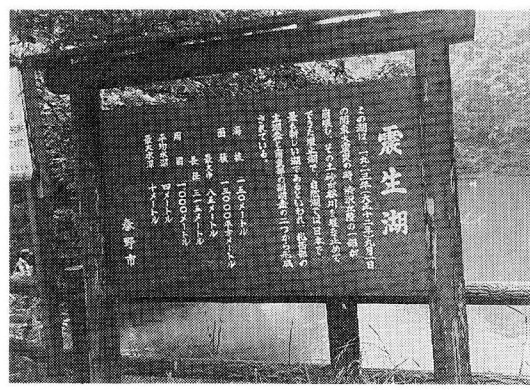 震生湖
この湖は、一九二三年(大正十二年)九月一日
の関東大震災の時、渋沢丘陵の一部が
崩壊し、その土砂が谷川を堰き止めて
できた堰止湖で、自然湖では日本で
最も新しい湖であるといわれ、
されている。
海抜 一五〇メートル
面積 一三〇〇〇平方メートル
最大巾 八五メートル
長径 三一五メートル
周囲 一〇〇〇メートル
平均水深 四メートル
最大水深 十メートル
秦野市